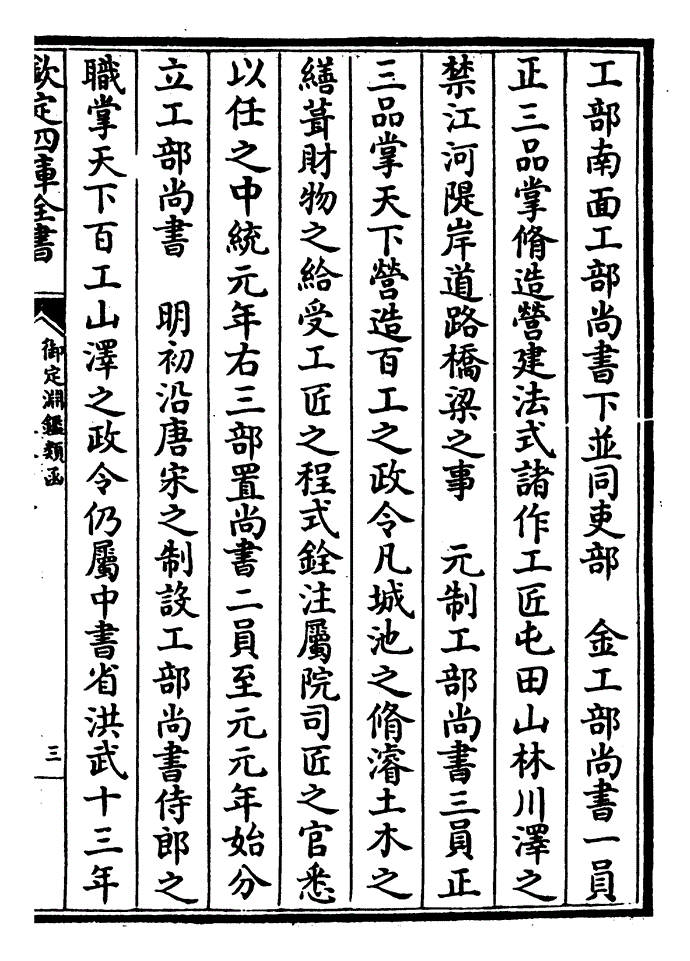 工部南面工部尚書下並同吏部　金工部尚書一員
正三品掌脩造營建法式諸作工匠屯田山林川澤之
禁江河隄岸道路橋梁之事　元制工部尚書三員正
三品掌天下營造百工之政令凡城池之脩濬土木之
繕葺財物之給受工匠之程式銓注屬院司匠之官悉
以任之中統元年右三部置尚書二員至元元年始分
立工部尚書　明初沿唐宋之制設工部尚書侍郎之
職掌天下百工山澤之政令仍屬中書省洪武十三年
欽定四庫全書
御定淵鑑類函
三